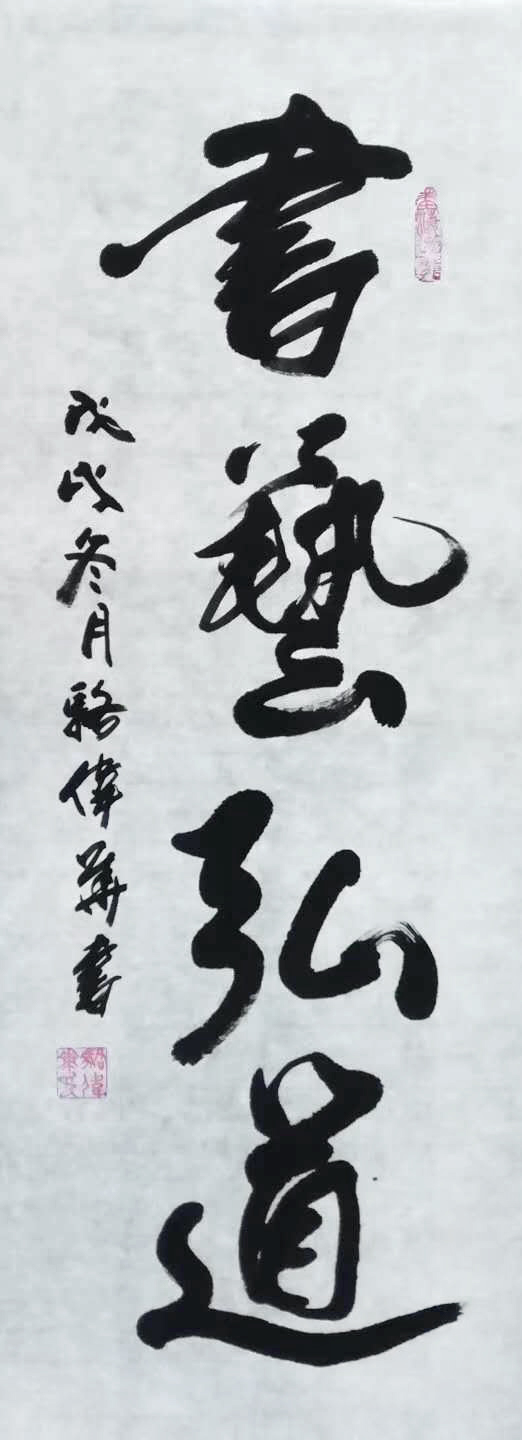 書藝弘道
戊戌冬月駱偉華書